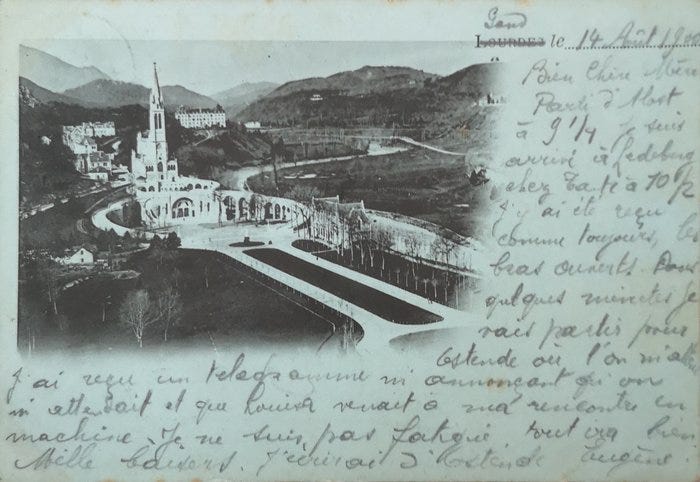 Gand
LOURDES le 14 Août 190
Bien Chère Mère
Parti d'Alost
à 9 1/4 je suis
arrivé à Ledeberg
chez Tante à 10
J'y ai été reçu
comme toujours, les
bras ouverts. Dans
quelques minutes je
vais partir pour
Ostende où l'on m'a
J'ai reçu un telegramme m'annonçant qu'on
m'attendait et que Louisa venait à ma rencontre en
machine. Je ne suis pas fatigué, tout va bien
Mille baisers. J'écrirai d'Ostende Eugène.